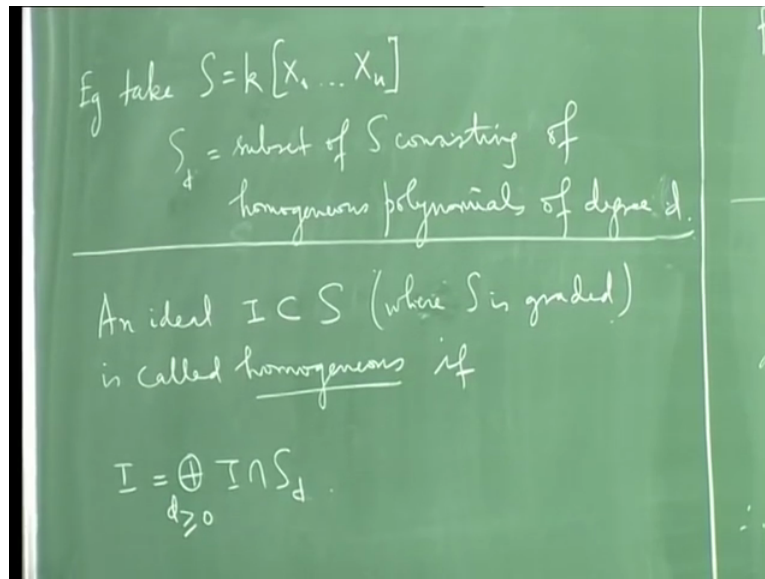 Eg take S = k[X₁ ... Xₙ]
S_d = subset of S consisting of
homogeneous polynomials of degree d.
An ideal I ⊂ S (where S is graded)
is called homogeneous if
I = ⊕ I ∩ S_d.
d≥0